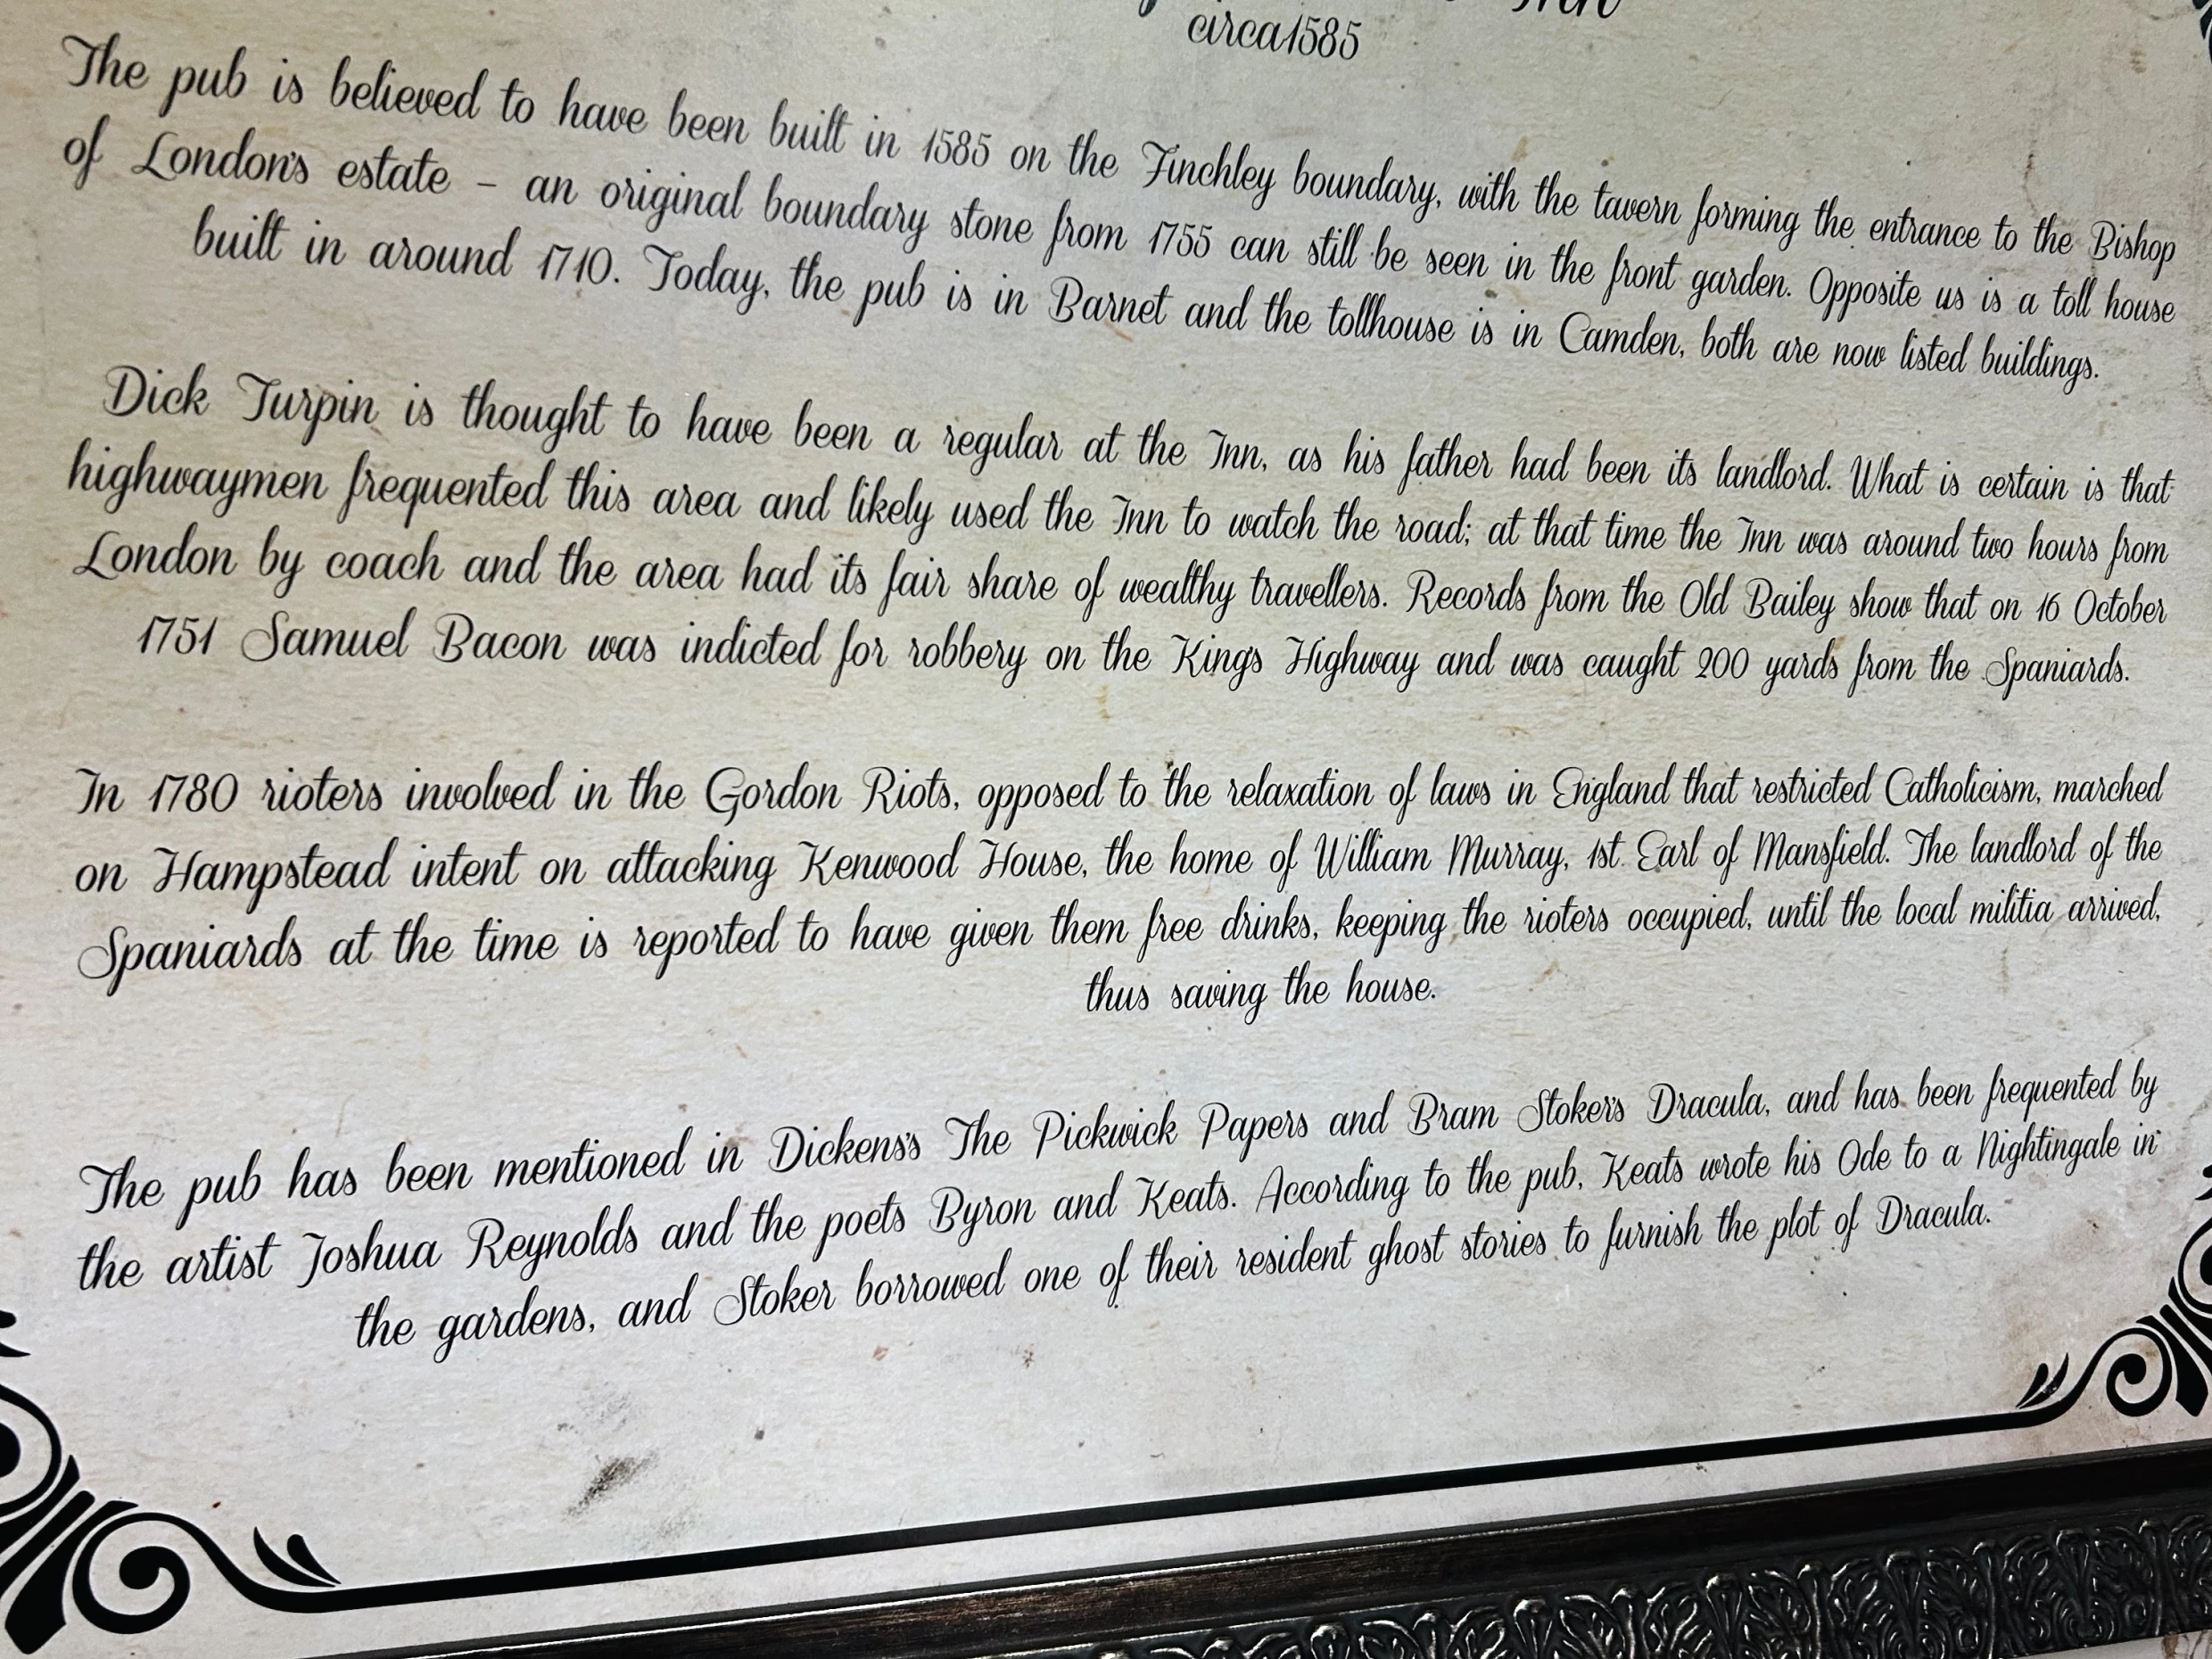 Inn
circa1585
The pub is believed to have been built in 1585 on the Finchley boundary, with the tavern forming the entrance to the Bishop
of London's estate – an original boundary stone from 1755 can still be seen in the front garden. Opposite us is a toll house
built in around 1710. Today, the pub is in Barnet and the tollhouse is in Camden, both are now listed buildings.
Dick Turpin is thought to have been a regular at the Inn, as his father had been its landlord. What is certain is that
highwaymen frequented this area and likely used the Inn to watch the road; at that time the Inn was around two hours from
London by coach and the area had its fair share of wealthy travellers. Records from the Old Bailey show that on 16 October
1751 Samuel Bacon was indicted for robbery on the King's Highway and was caught 200 yards from the Spaniards.
In 1780 rioters involved in the Gordon Riots, opposed to the relaxation of laws in England that restricted Catholicism, marched
on Hampstead intent on attacking Kenwood House, the home of William Murray, 1st Earl of Mansfield. The landlord of the
Spaniards at the time is reported to have given them free drinks, keeping the rioters occupied, until the local militia arrived,
thus saving the house.
The pub has been mentioned in Dickens's The Pickwick Papers and Bram Stoker's Dracula, and has been frequented by
the artist Joshua Reynolds and the poets Byron and Keats. According to the pub, Keats wrote his Ode to a Nightingale in
the gardens, and Stoker borrowed one of their resident ghost stories to furnish the plot of Dracula.